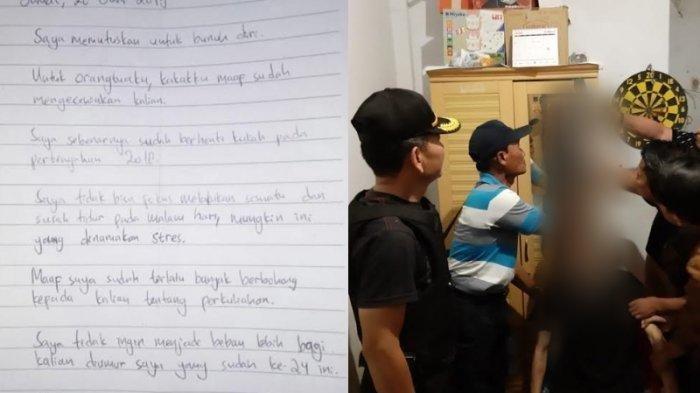 Jumat, 20 Juni 2019
Saya memutuskan untuk bunuh diri.
Untuk orangtuaku, kakakku maap sudah
mengecewakan kalian.
Saya sebenarnya sudah berhenti kuliah pada
pertengahan 2018.
Saya tidak bisa fokus melakukan sesuatu dan
susah tidur pada malam hari, mungkin ini
yang dinamakan stres.
Maap saya sudah terlalu banyak berbohong
kepada kalian tentang perkuliahan.
Saya tidak ingin menjadi beban lebih bagi
kalian diumur saya yang sudah ke-24 ini.
Miyako
20